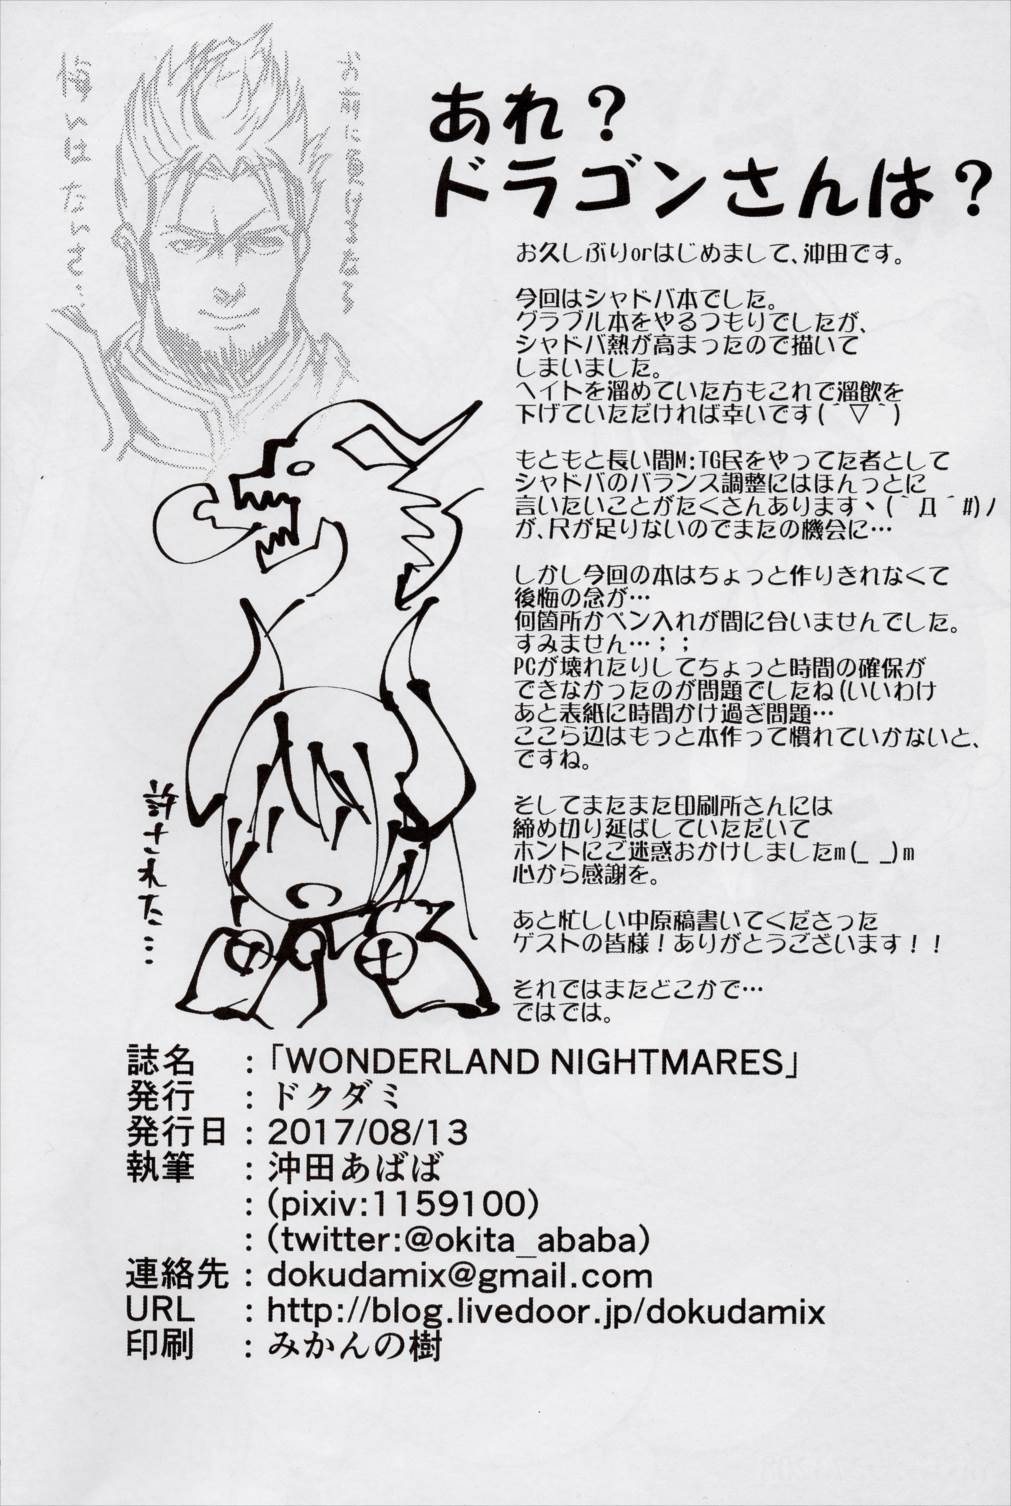 お前に負けるなら
悔いはないさ…
あれ？
ドラゴンさんは？
お久しぶりorはじめまして､沖田です。
今回はシャドバ本でした。
グラブル本をやるつもりでしたが、
シャドバ熱が高まったので描いて
しまいました。
ヘイトを溜めていた方もこれで溜飲を
下げていただければ幸いです(´▽｀)
もともと長い間M:TG民をやってた者として
シャドバのバランス調整にはほんっとに
言いたいことがたくさんありますヽ(｀Д´#)ﾉ
が､尺が足りないのでまたの機会に…
しかし今回の本はちょっと作りきれなくて
後悔の念が…
何箇所かペン入れが間に合いませんでした。
すみません…；；
PCが壊れたりしてちょっと時間の確保が
できなかったのが問題でしたね(いいわけ
あと表紙に時間かけ過ぎ問題…
ここら辺はもっと本作って慣れていかないと、
ですね。
そしてまたまた印刷所さんには
締め切り延ばしていただいて
ホントにご迷惑おかけしましたm(_ _)m
心から感謝を。
あと忙しい中原稿書いてくださった
ゲストの皆様！ありがとうございます！！
それではまたどこかで…
ではでは。
許された…
誌名　：「WONDERLAND NIGHTMARES」
発行　：ドクダミ
発行日：2017/08/13
執筆　：沖田あばば
：(pixiv:1159100)
：(twitter:@okita_ababa)
連絡先：dokudamix@gmail.com
URL　：http://blog.livedoor.jp/dokudamix
印刷　：みかんの樹